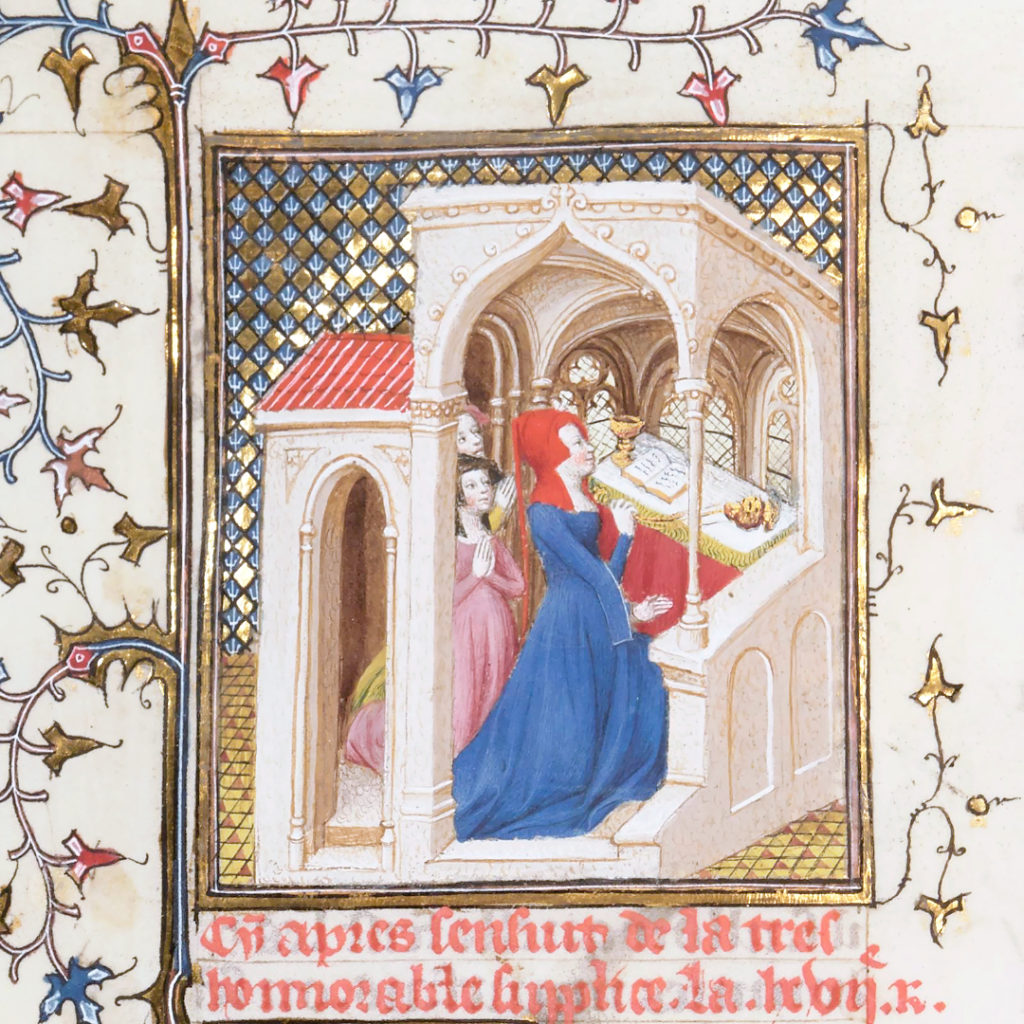 Cy apres sensuit de la tres
honnorable supplice. la .lxvij.e R.